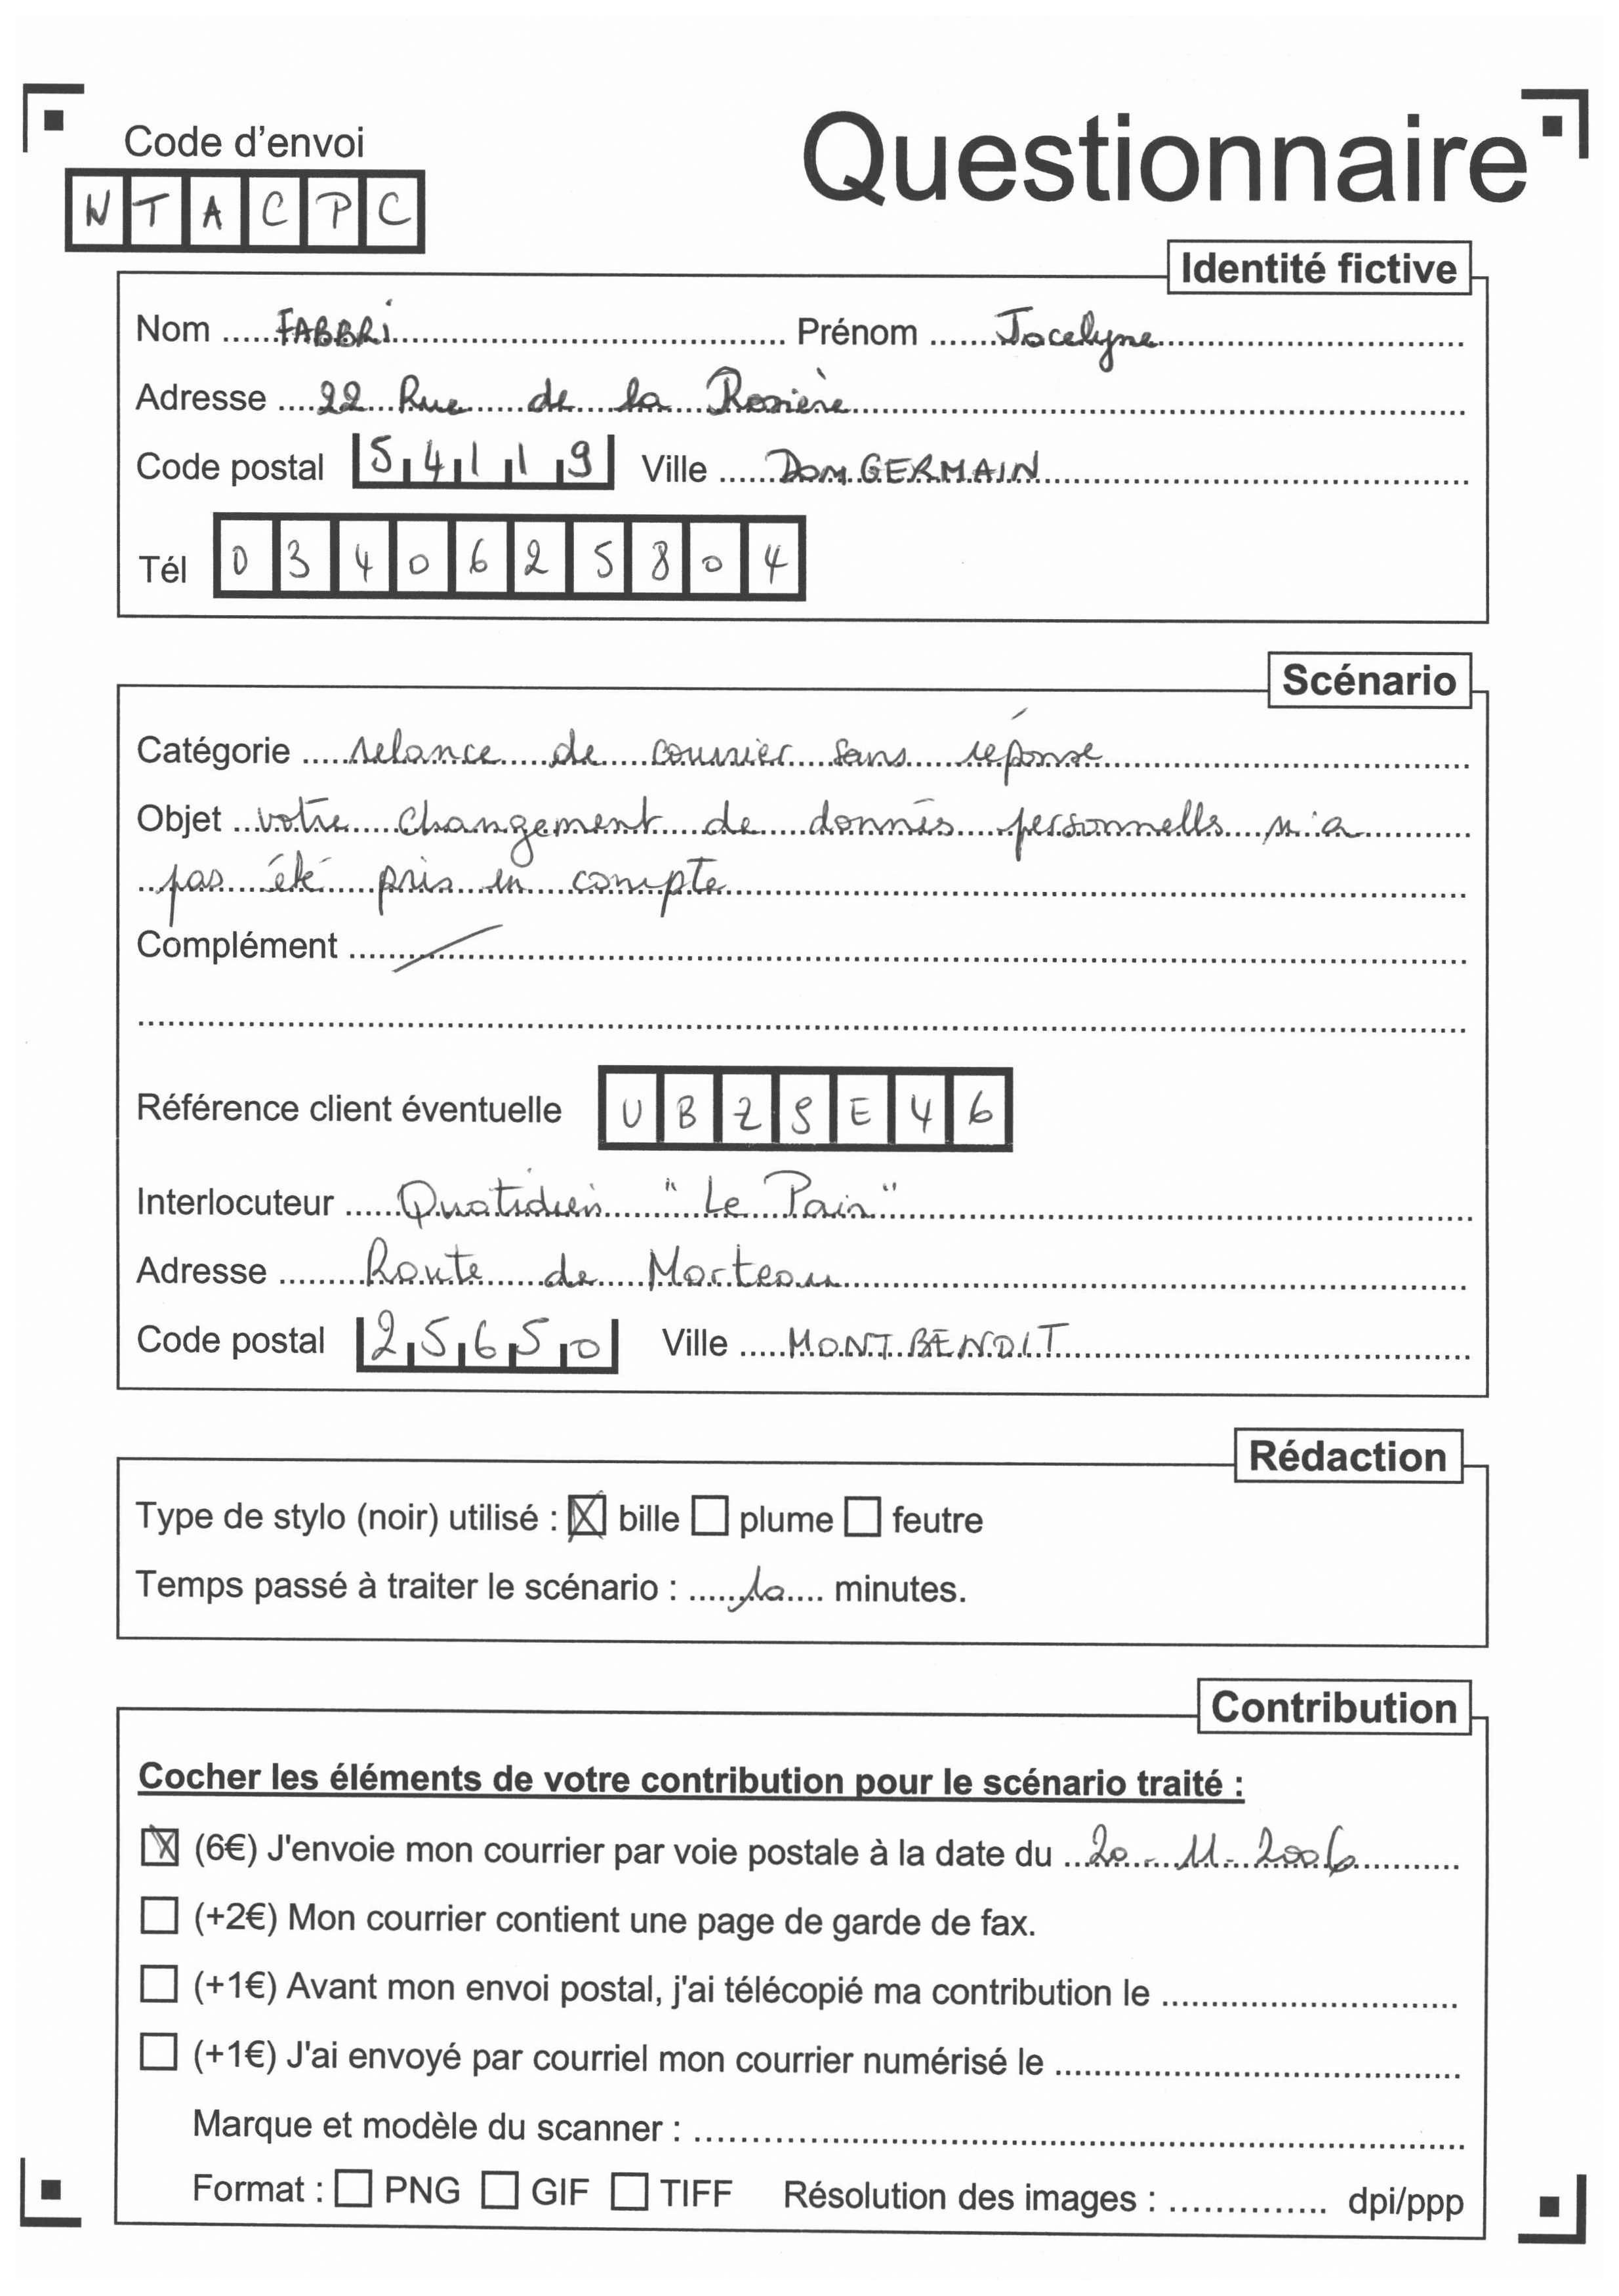 Code d'envoi
Questionnaire
NTACPC
Identité fictive
Nom FABBRI Prénom Jocelyne
Adresse 22 Rue de la Rosière
Code postal 54119 Ville DOMGERMAIN
Tél 0340625804
Scénario
Catégorie relance de courrier sans réponse
Objet votre changement de donnés personnells n'a
pas été pris en compte
Complément
Référence client éventuelle UBZSE46
Interlocuteur Quotidien "Le Pain"
Adresse Route de Morteau
Code postal 25650 Ville MONTBENOIT
Rédaction
Type de stylo (noir) utilisé : bille plume feutre
Temps passé à traiter le scénario : 10 minutes.
Contribution
Cocher les éléments de votre contribution pour le scénario traité :
(6€) J'envoie mon courrier par voie postale à la date du 20-11-2006
(+2€) Mon courrier contient une page de garde de fax.
(+1€) Avant mon envoi postal, j'ai télécopié ma contribution le
(+1€) J'ai envoyé par courriel mon courrier numérisé le
Marque et modèle du scanner :
Format : PNG GIF TIFF Résolution des images : dpi/ppp